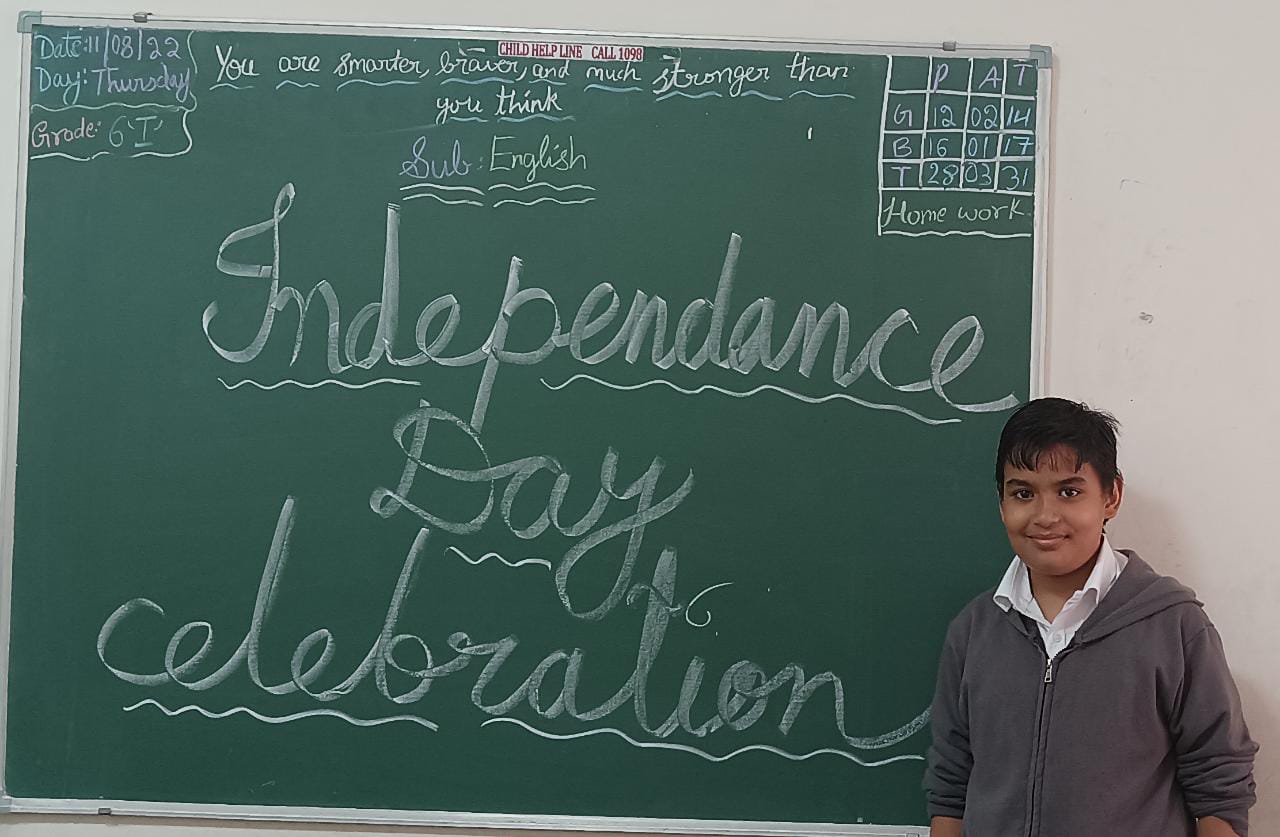 CHILD HELP LINE CALL 1098
Date: 11/08/22
Day: Thursday
Grade: 6 'I'
You are smarter, braver, and much stronger than
you think
Sub: English
P A T
G 12 02 14
B 16 01 17
T 28 03 31
Home work
Independance
Day
celebration